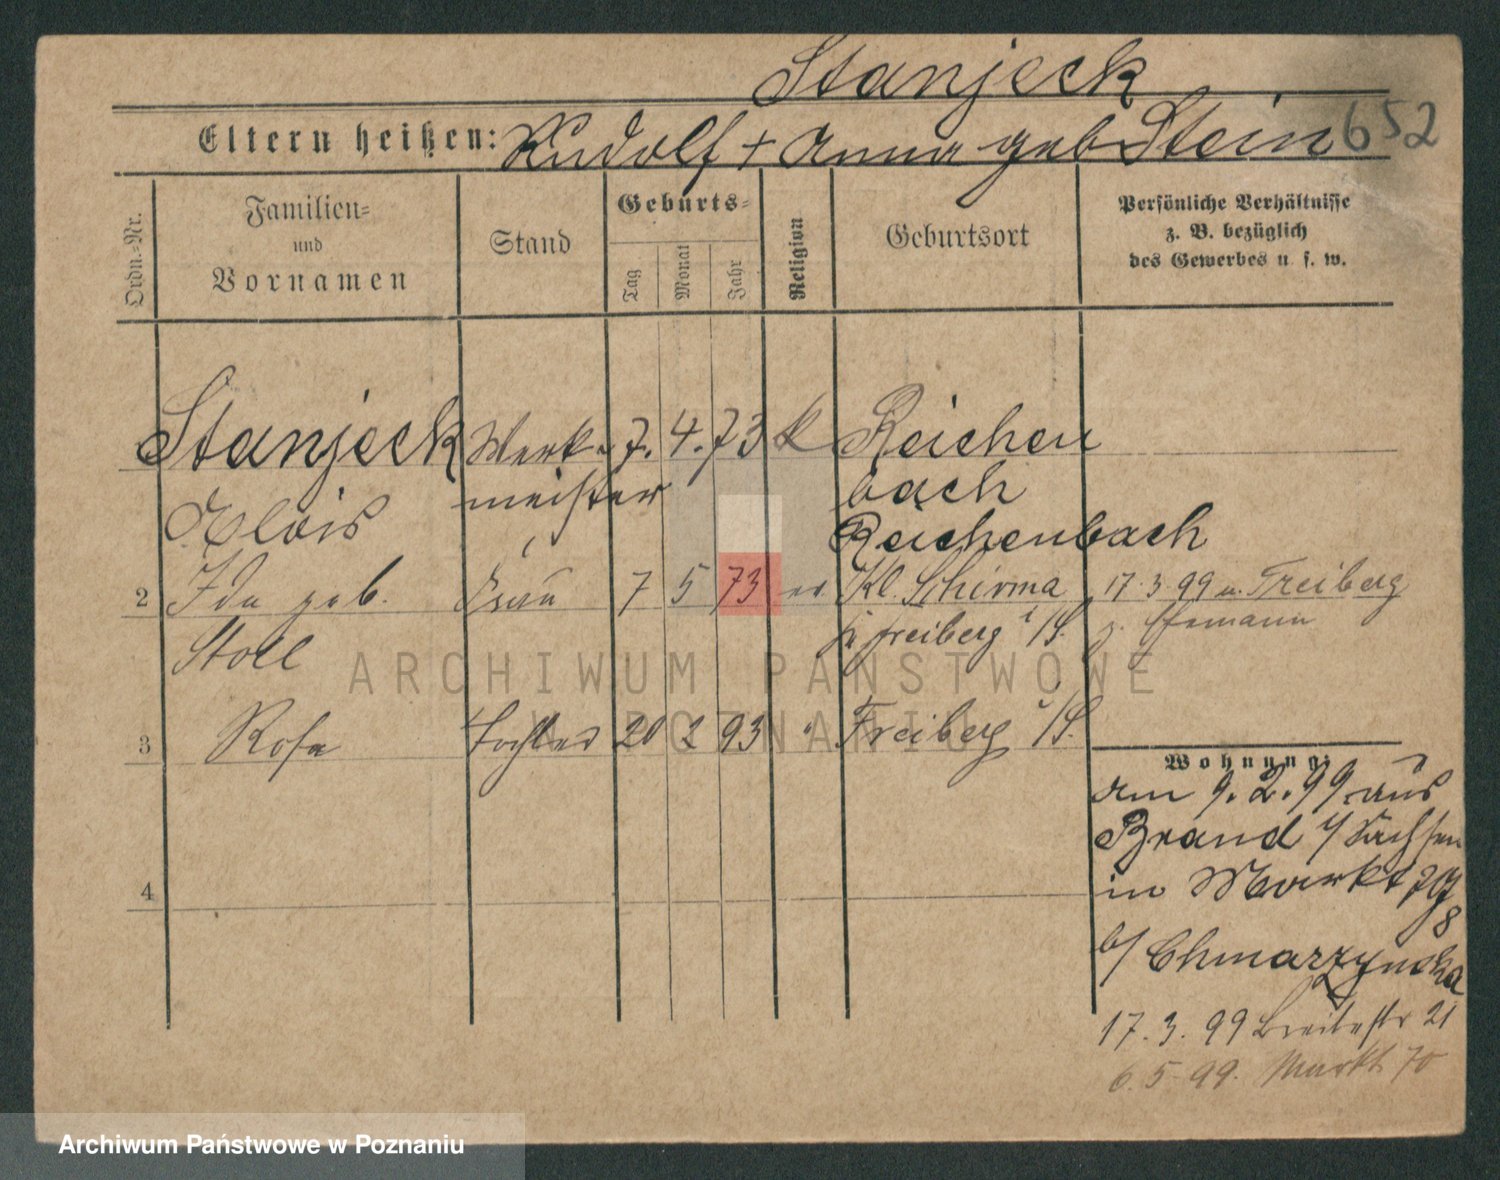 Stanjeck
Eltern heißen: Rudolf + Anna geb Stein 652
Ordn.-Nr.
Familien-
und
Vornamen
Stand
Geburts-
Tag
Monat
Jahr
Religion
Geburtsort
Persönliche Verhältnisse
z. B. bezüglich
des Gewerbes u. s. w.
Stanjeck Werk- 7. 4. 73 k Reichen
Alois meister bach
Reichenbach
2 Ida geb. Frau 7 5 73 ev Kl. Schirma 17. 3. 99 v. Freiberg
Stoll Freiberg i/S. z. Ehemann
3 Rosa Tochter 20 2 93 " Freiberg i/S.
Wohnung:
am 9. 2. 99 aus
Brand i/ Sachsen
in Markt 70
8
4
b/ Chmarzynska
17. 3. 99 Breitestr 21
6. 5 99. Markt 70
ARCHIWUM PAŃSTWOWE
W POZNANIU
Archiwum Państwowe w Poznaniu